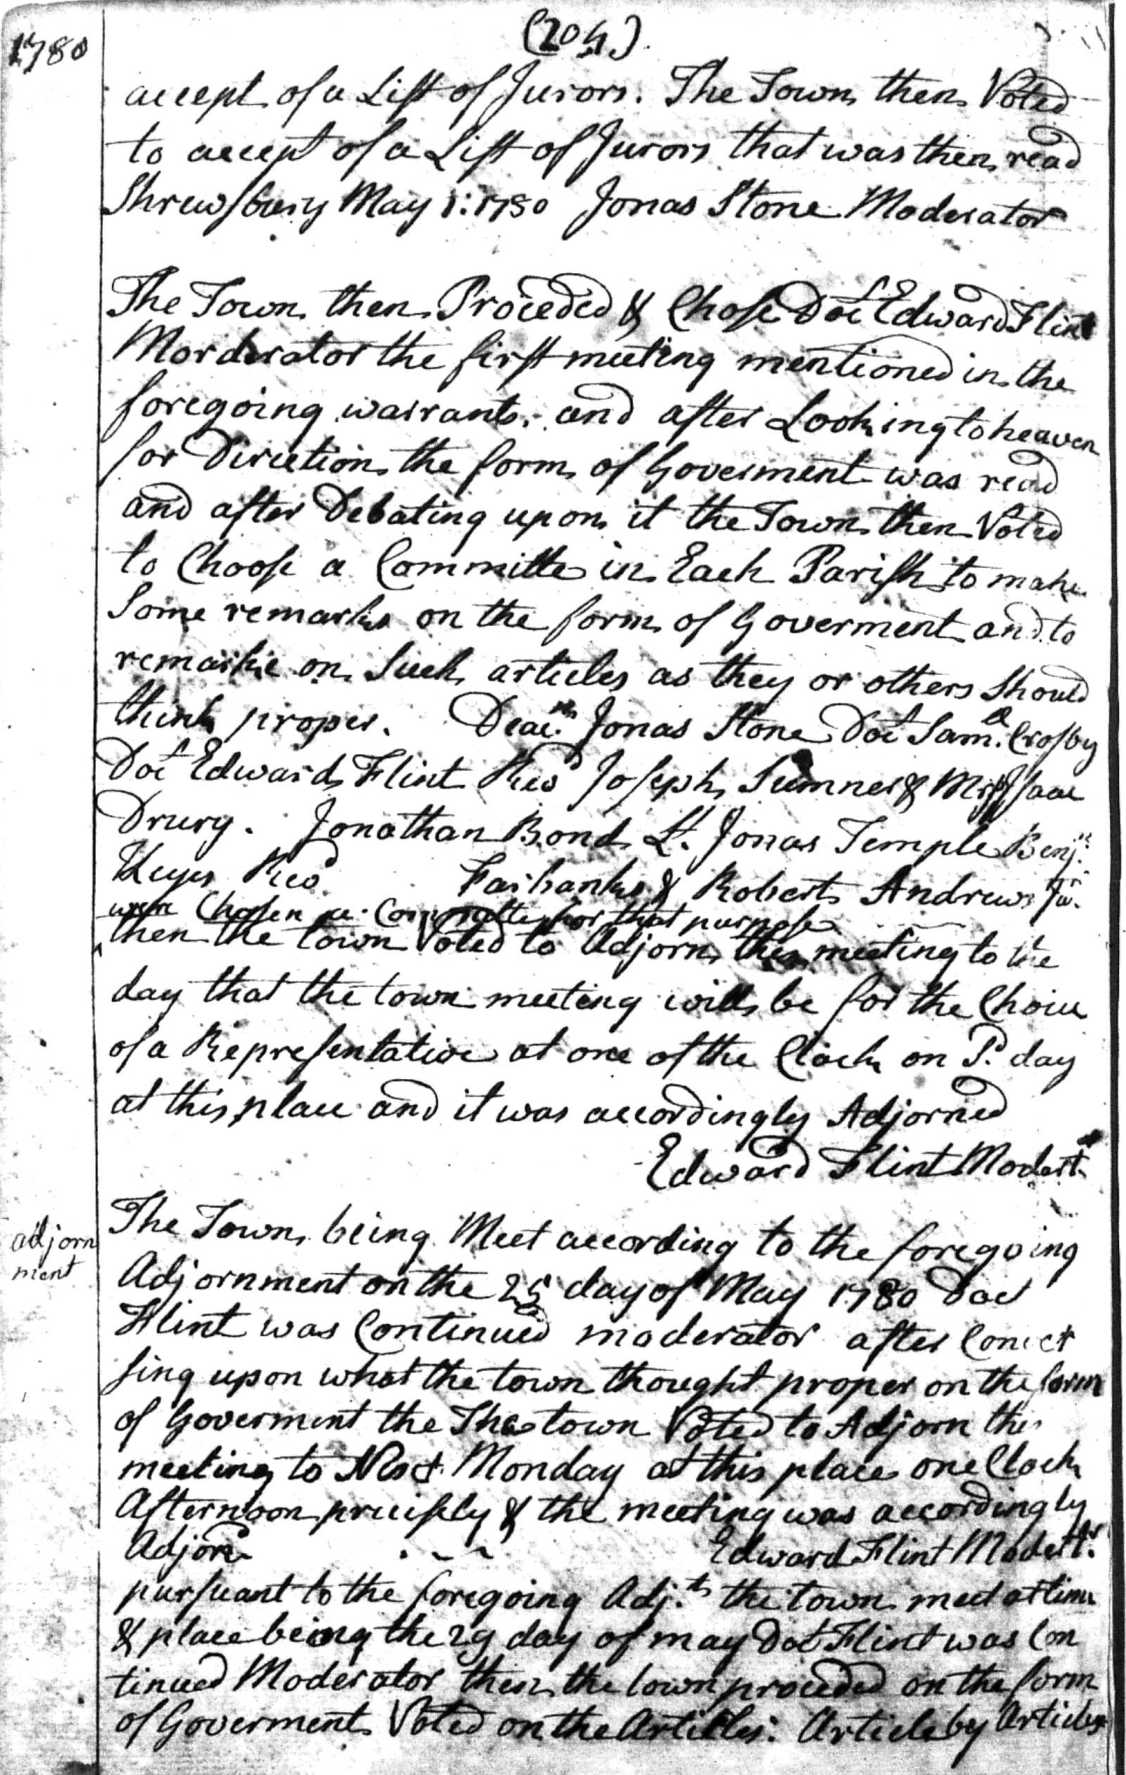 1780
(204)
accept of a List of Jurors. The Town then Voted
to accept of a List of Jurors that was then read
Shrewsbury May 1: 1780 Jonas Stone Moderator
The Town then Proceded & Chose Doct Edward Flint
Morderator the first meeting mentioned in the
foregoing warrant. and after Looking to heaven
for Direction the form of Goverment was read
and after Debating upon it the Town then Voted
to Choose a Committe in Each Parish to make
Some remarks on the form of Goverment and to
remarke on Such articles as they or others Should
think proper. Deacn Jonas Stone Doct Saml. Crosby
Doct Edward Flint Revd Joseph Sumner & Mr Isaac
Drury. Jonathan Bond Lt. Jonas Temple Benjn.
Keyes Revd Fairbanks & Robert Andrews Jur.
were Chosen a Committe for that purpose
then the town Voted to Adjorn this meeting to the
day that the town meeting will be for the Choice
of a Representative at one of the Clock on Sd. day
at this place and it was accordingly Adjorned
Edward Flint Modertr
adjorn
ment
The Town being Meet according to the foregoing
Adjornment on the 25 day of May 1780 Doct
Flint was Continued moderator after
sing upon what the town thought proper on the form
of Goverment the The town Voted to Adjorn this
meeting to Next Monday at this place one Clock
Afternoon precisely & the meeting was accordingly
Adjornd Edward Flint Modertr.
pursuant to the foregoing Adj.t the town meet at time
& place being the 29 day of may Doct Flint was Con
tinued Moderator then the town proceded on the form
of Goverment Voted on the Articles: Article by Article